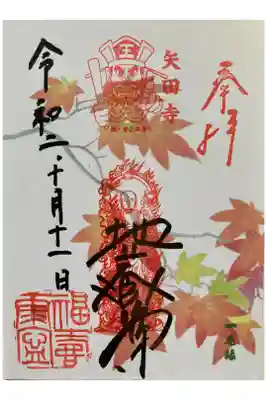 奉拝
矢田寺
地蔵尊
令和二・十月十一日